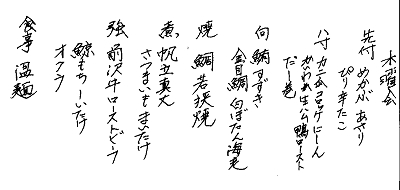 木曜会
先付 めかぶ あさり
ぴり辛たこ
八寸 カニ玉コロッケ にしん
かいわれ生ハム 鴨ロースト
だし巻
向 鮪 すずき
金目鯛 ぼたん海老
焼 鯛若狭焼
煮 帆立真丈
さつまいも まいたけ
強 前沢牛ローストビーフ
鯨もち しいたけ
オクラ
食事 温麺